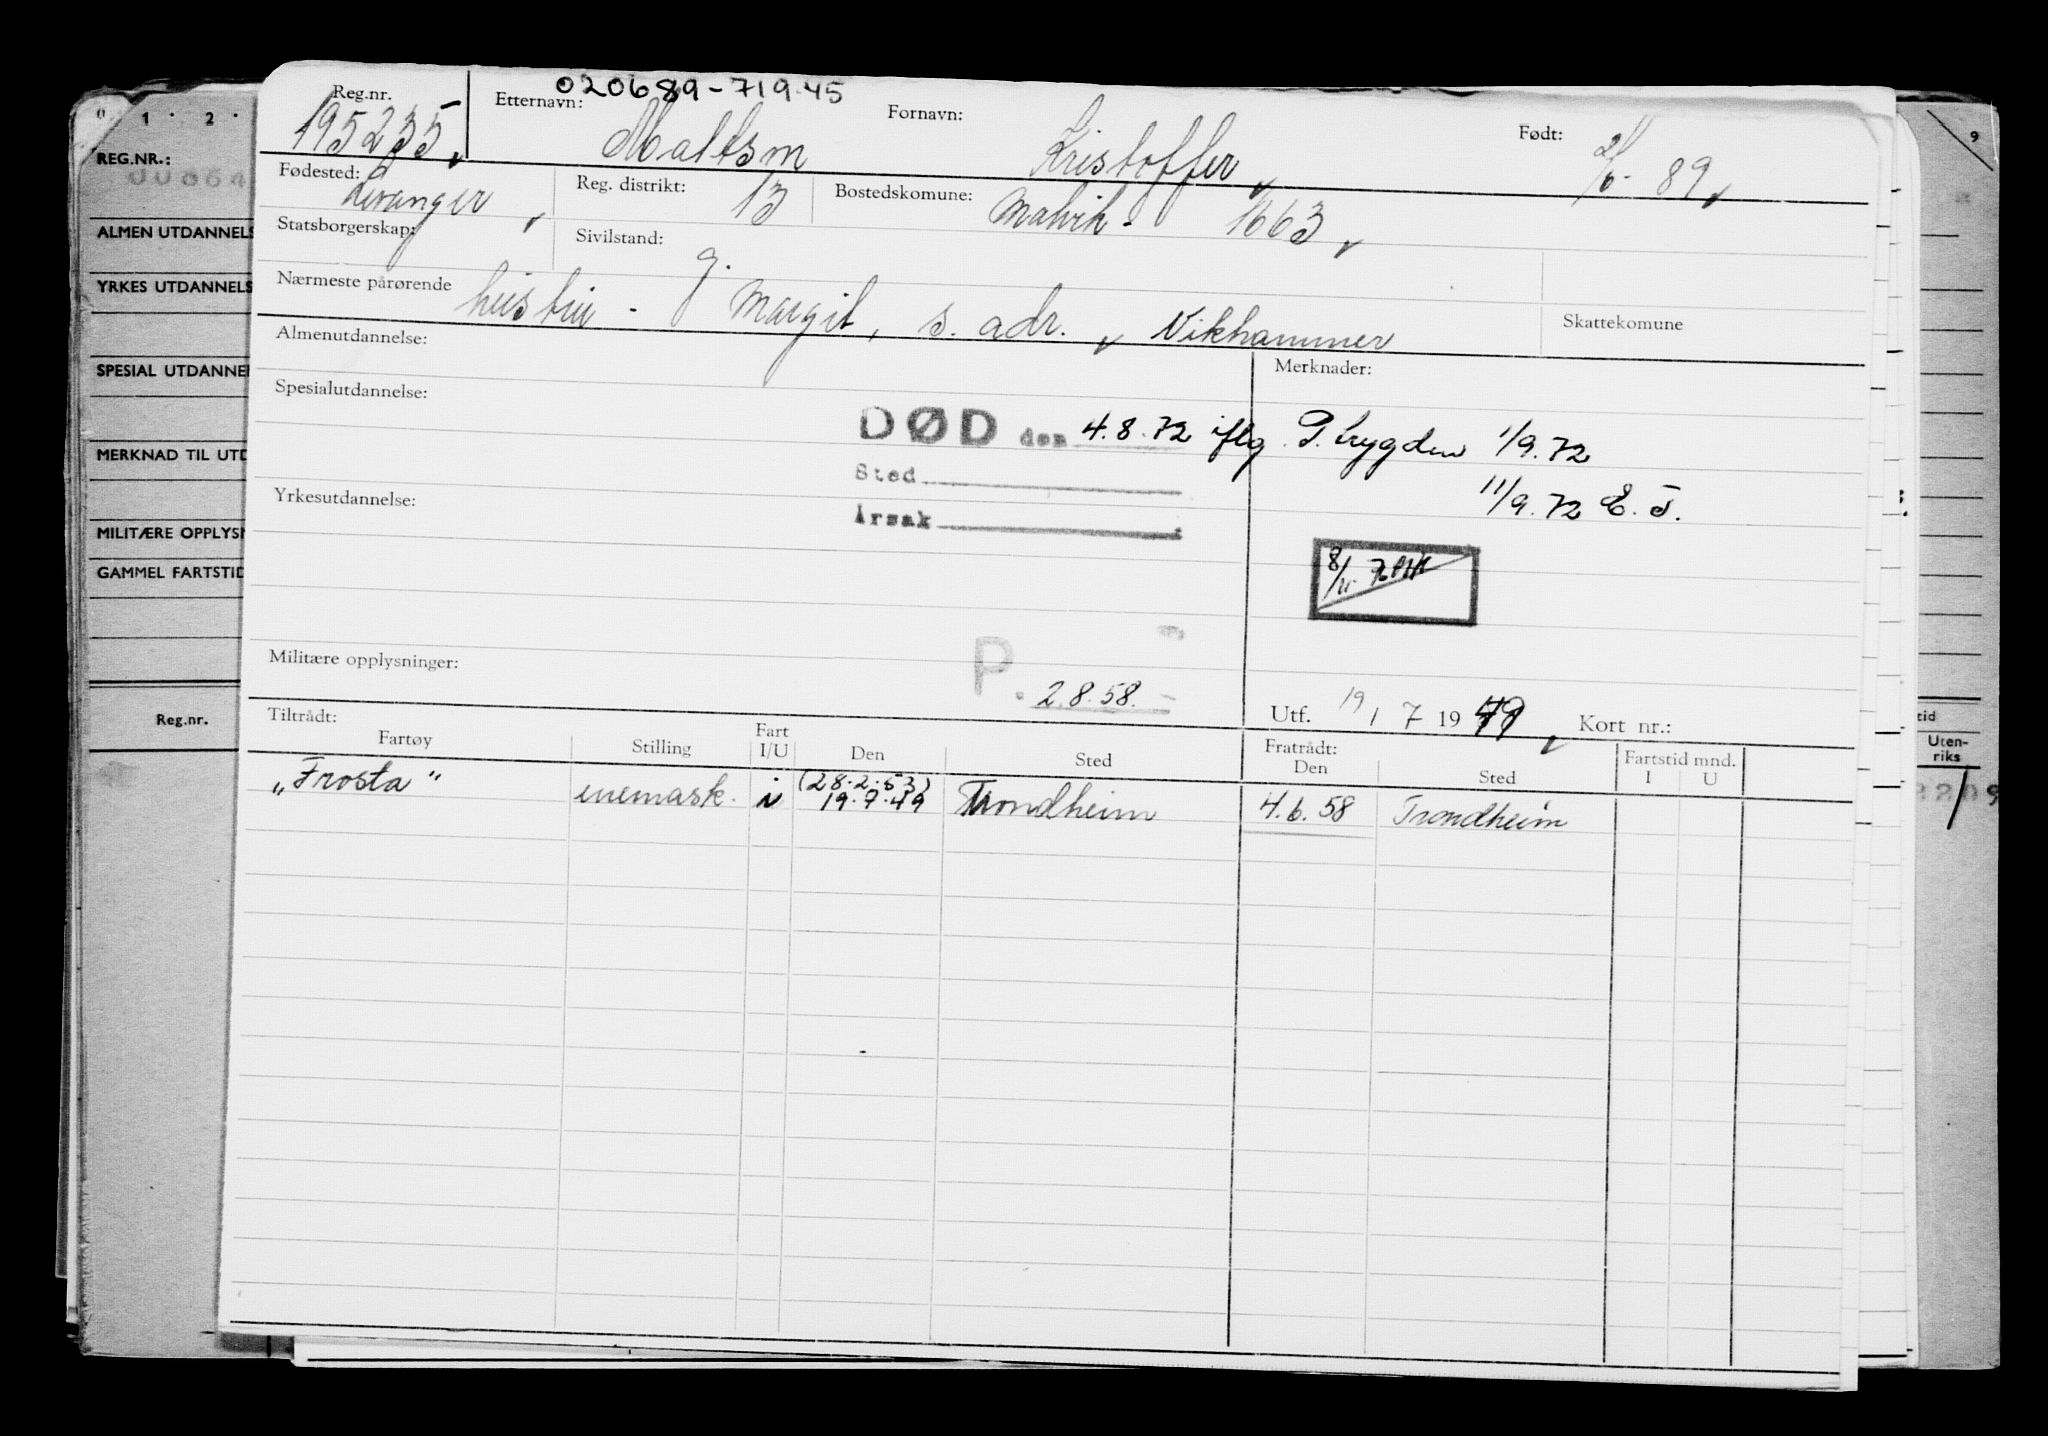 020689-719.45
Reg.nr. Etternavn: Fornavn: Født:
195235 Maltsm Kristoffer 2/6-89
Fødested: Levanger Reg. distrikt: 13 Bostedskomune: Malvik - 1663
Statsborgerskap: Sivilstand: g.
Nærmeste pårørende hustru - Margit, s. adr. Vikhammer Skattekomune
Almenutdannelse: Merknader:
Spesialutdannelse:
DØD den 4.8.72 iflg. P. trygden 1/9.72
Sted
11/9.72 E. T.
Yrkesutdannelse:
Årsak
8/11
Militære opplysninger: P. 2.8.58.
Utf. 19/7 1949 Kort nr.:
Tiltrådt: Fratrådt: Fartstid mnd.
Fartøy Stilling Fart I/U Den Sted Den Sted I U
(28.2.53)
„Frosta" enemask. i 19.7.49 Trondheim 4.6.58 Trondheim
0 1 2
REG.NR.:
ALMEN UTDANNELS
YRKES UTDANNELS
SPESIAL UTDANNE
MERKNAD TIL UTD
MILITÆRE OPPLYS
GAMMEL FARTSTID
Reg.nr.
9
tid
Uten-
riks